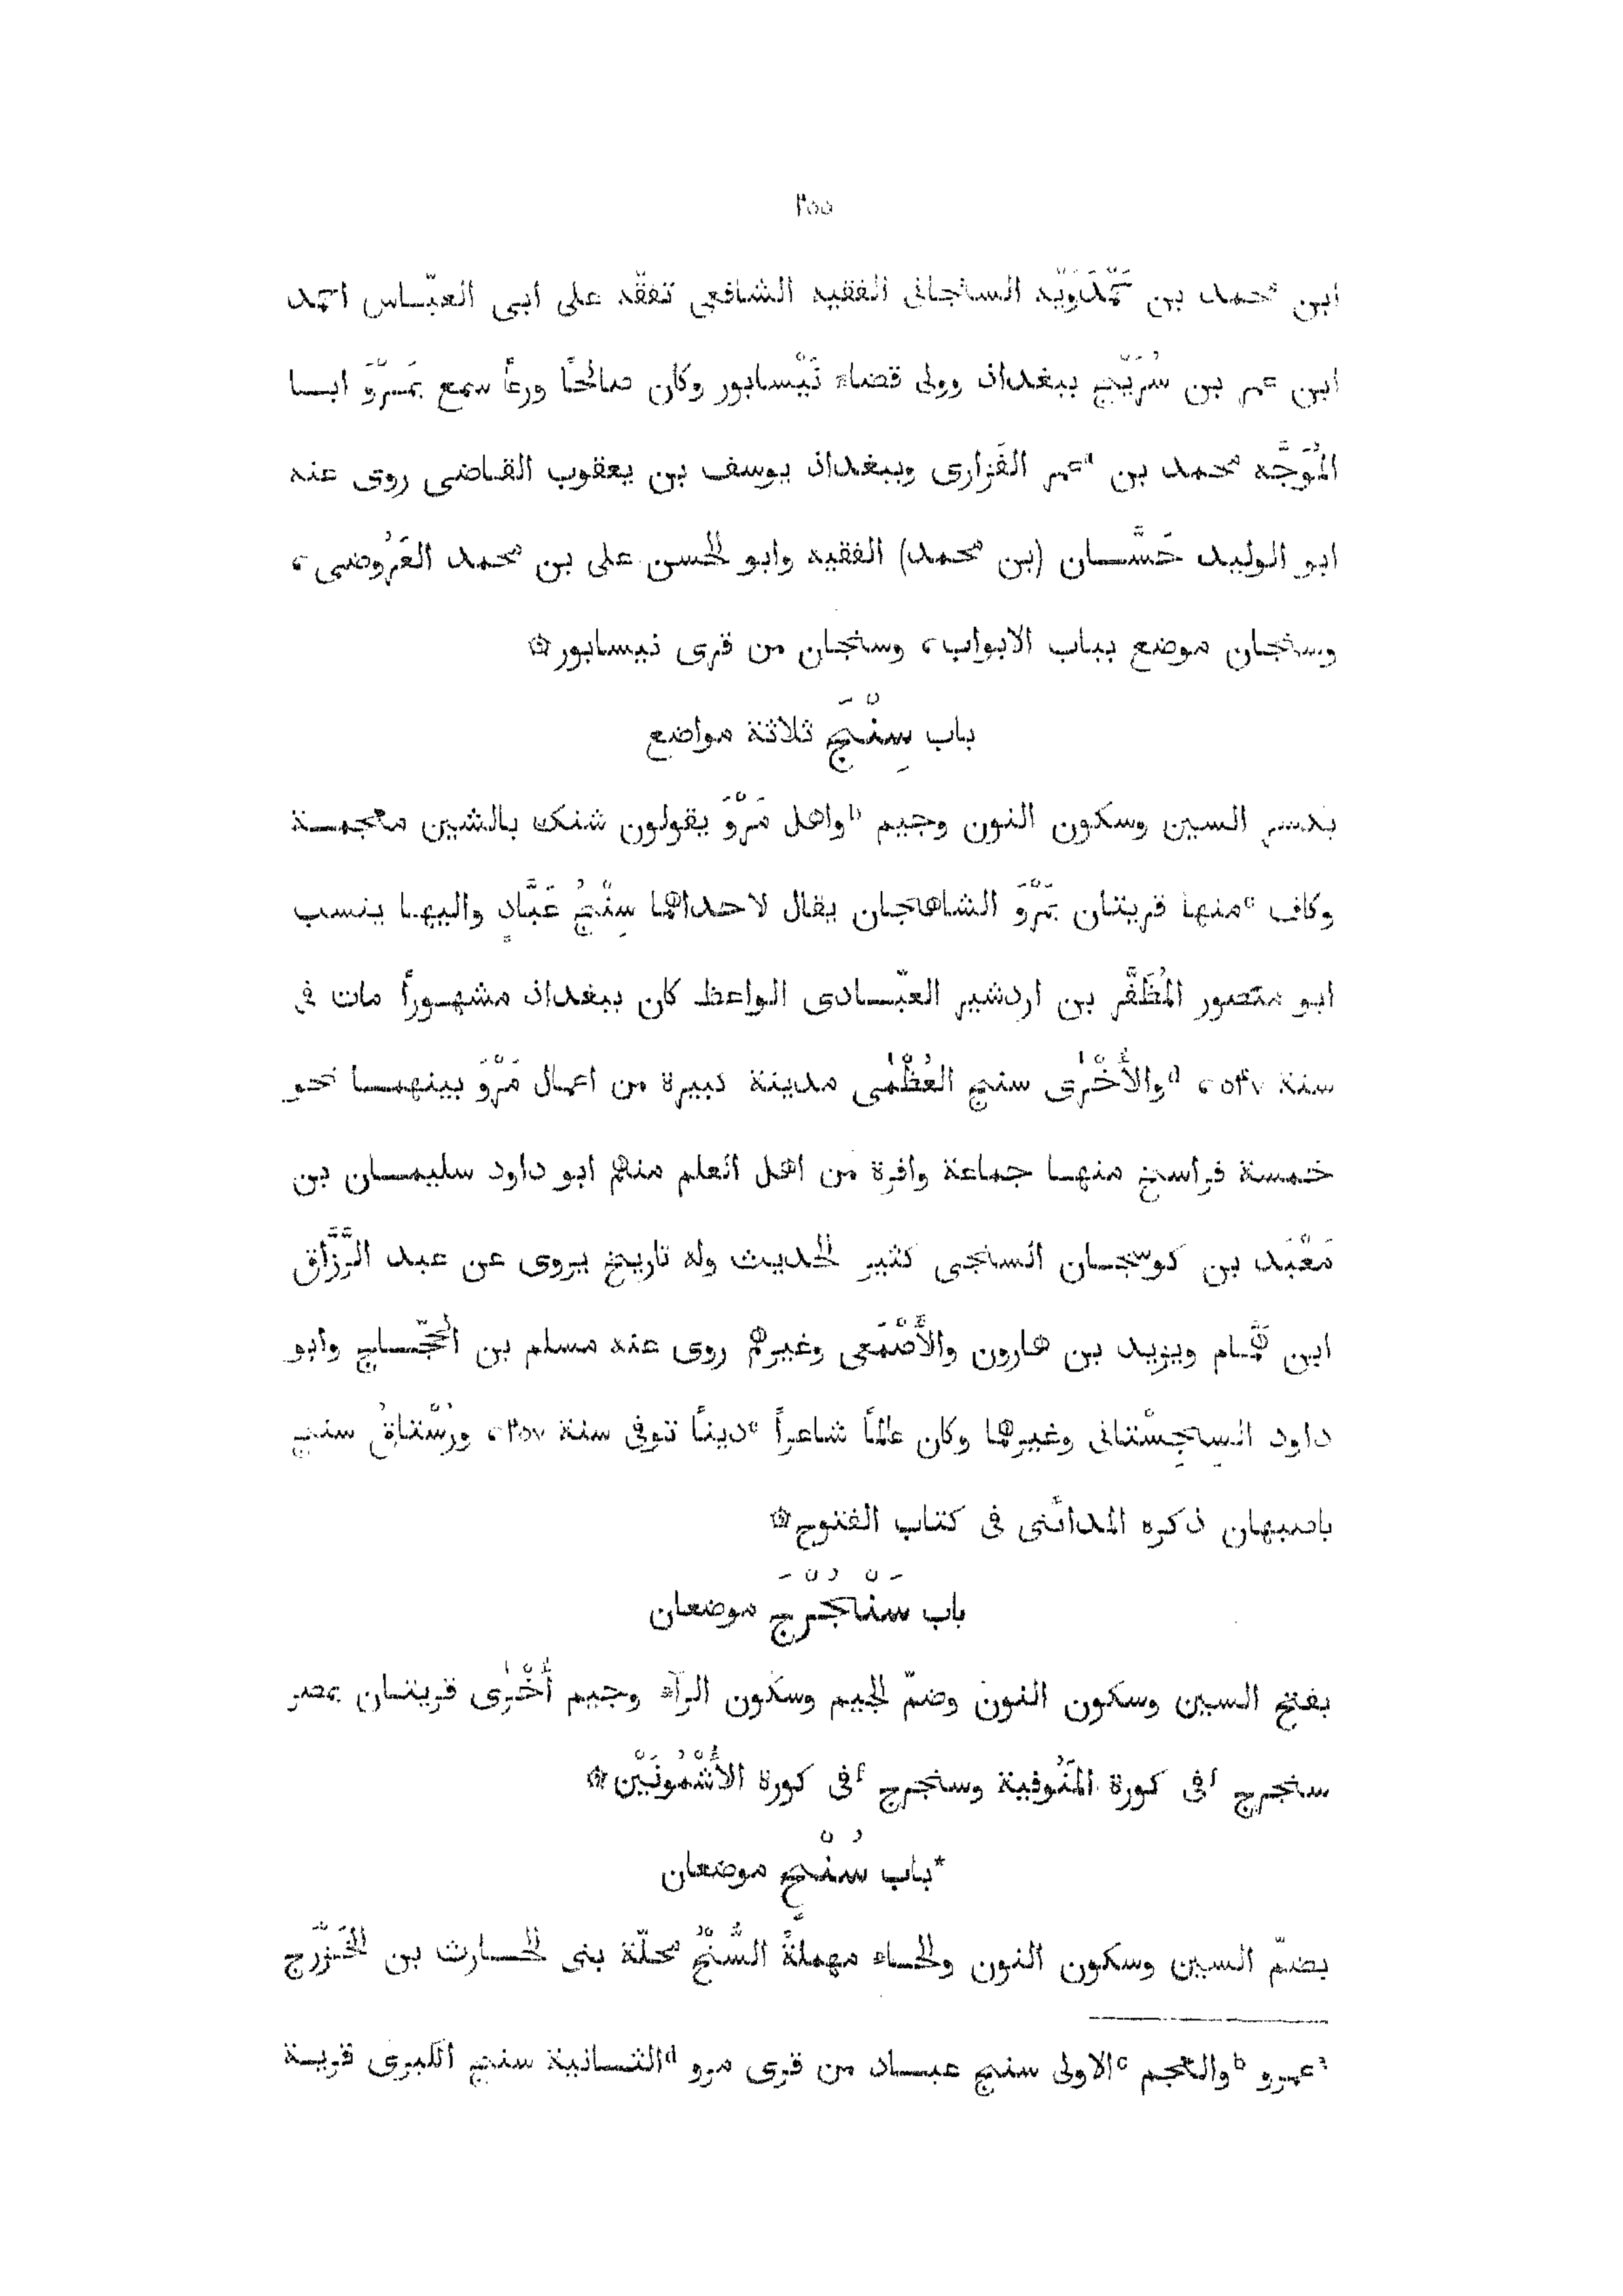 ٣٥٥
ابن محمد بن حَمْدَوَيْه السنجانى الفقيه الشافعى تفقّه على أبى العبّاس احمد
ابن عمر بن سُرَيْج ببغداد وولى قضاء نَيْسابور وكان صالحًا ورعًا سمع بمَرْوَ ابا
المُوَجَّه محمد بن ªعمر الفَزارى وببغداد يوسف بن يعقوب القاضى روى عنه
ابو الوليد حَسَّان (بن محمد) الفقيه وابو الحسن على بن محمد العَرُوضى،
وسنجان موضع بباب الابواب، وسنجان من قرى نيسابور۞
باب سِنْجَ ثلاثة مواضع
بكسر السين وسكون النون وجيم bواهل مَرْوَ يقولون شنك بالشين معجمة
وكاف cمنها قريتان بمَرْوَ الشاهجان يقال لاحداهما سِنْجُ عَبَّادٍ واليها ينسب
ابو منصور المُظَفَّر بن اردشير العبّادى الواعظ كان ببغداد مشهورًا مات فى
سنة ٥٤٧، dوالأُخْرٰى سنج العُظْمٰى مدينة كبيرة من اعمال مَرْوَ بينهما نحو
خمسة فراسخ منها جماعة وافرة من اهل العلم منهم ابو داود سليمان بن
مَعْبَد بن كوسجان السنجى كثير الحديث وله تاريخ يروى عن عبد الرَّزَّاق
ابن همّام ويزيد بن هارون والأَصْمَعى وغيرهم روى عنه مسلم بن الحجّاج وابو
داود السِجِسْتانى وغيرهما وكان عالمًا شاعرًا eدينًا توفى سنة ٢٥٧، ورُسْتاقُ سنج
باصبهان ذكره المدائنى فى كتاب الفتوح۞
باب سَنْجُرْجَ موضعان
بفتح السين وسكون النون وضمّ الجيم وسكون الرآء وجيم أُخْرٰى قريتان بمصر
سنجرج fفى كورة المَنُوفية وسنجرج fفى كورة الأُشْمُونَيْن۞
*باب سُنْحٍ موضعان
بضمّ السين وسكون النون والحاء مهملةً السُّنْحُ محلّة بنى الحارث بن الخَزْرَج
ªعمرو bوالعجم cالاولى سنج عباد من قرى مرو dالثانية سنج الكبرى قرية